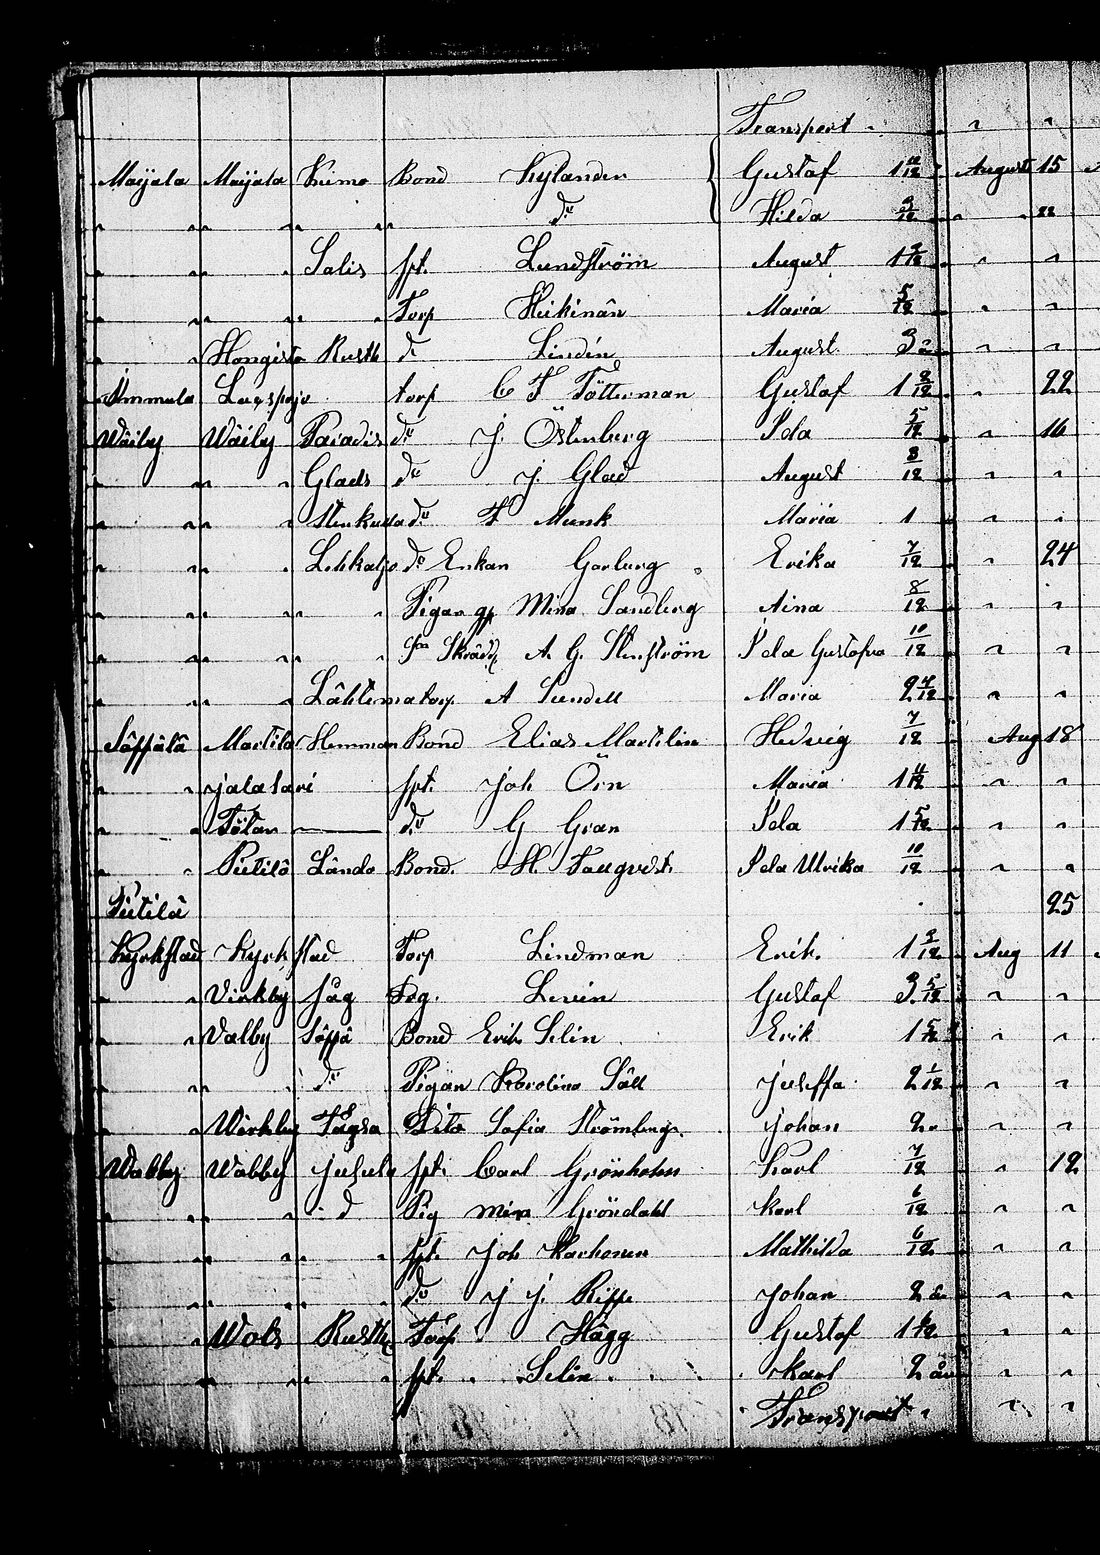 Transport
Maijala Maijala Kumo Bond Kylander Gustaf 1 11/12 August 15
" " " " do Hilda 3/12 " 22
" " Salis spt. Lundström August 1 2/12 " "
" " " " Torp Heikinän Maria 5/12 " "
" Hongisto Rusth d. Lindén August 3 " "
Immula Laespojo torp C F Tötterman Gustaf 1 2/12 " 22
Wäiby Wäiby Paradis do J. Östenberg Ida 5/12 " 16
" " " Glads do J. Glad August 8/12 " "
" " " do F Munk Maria 1 " "
" " " do Enkan Garberg Erika 7/12 " 24
" " " " Pigan Mina Sandberg Aina 8/12 " "
" " " " Skrädd A. G. Stenström Ida Gustafva 10/12 " "
" " Lähtema torp. A Sundell Maria 2 4/12 " "
Säppälä Martila Hemman Bond Elias Martelin Hedvig 7/12 Aug 18
" jalasari spt. Joh Örn Maria 1 11/12 " "
" Tötar — do G Gran Ida 1 5/12 " "
" Pütilä Lända Bond. H. Ida Ulrika 10/12 " "
Pütilä 25
Kyrkstad Kyrkstad Torp Lindman Erik. 1 3/12 Aug 11
" Virkby Jäg Levin Gustaf 3 5/12 " "
" Valby Säppä Bond Erik Selin Erik 1 5/12 " "
" " do Pigan Karolina Säll Juseffa 2 1/12 " "
" Wirkby Tägsa Dito Sofia Strömberg. Johan 2 " "
Wabby Wabby Jusula spt. Carl Grönholm Karl 7/12 " 12
" " " d Pig Mina Gröndahl Karl 6/12 " "
" " " " spt. Joh Karhonen Mathilda 6/12 " "
" " " " do J J. Rippe Johan 2 " "
" Wols Rusth Torp Hägg Gustaf 1 " "
" " " " spt. Selin Karl 2 år " "
Transport " "